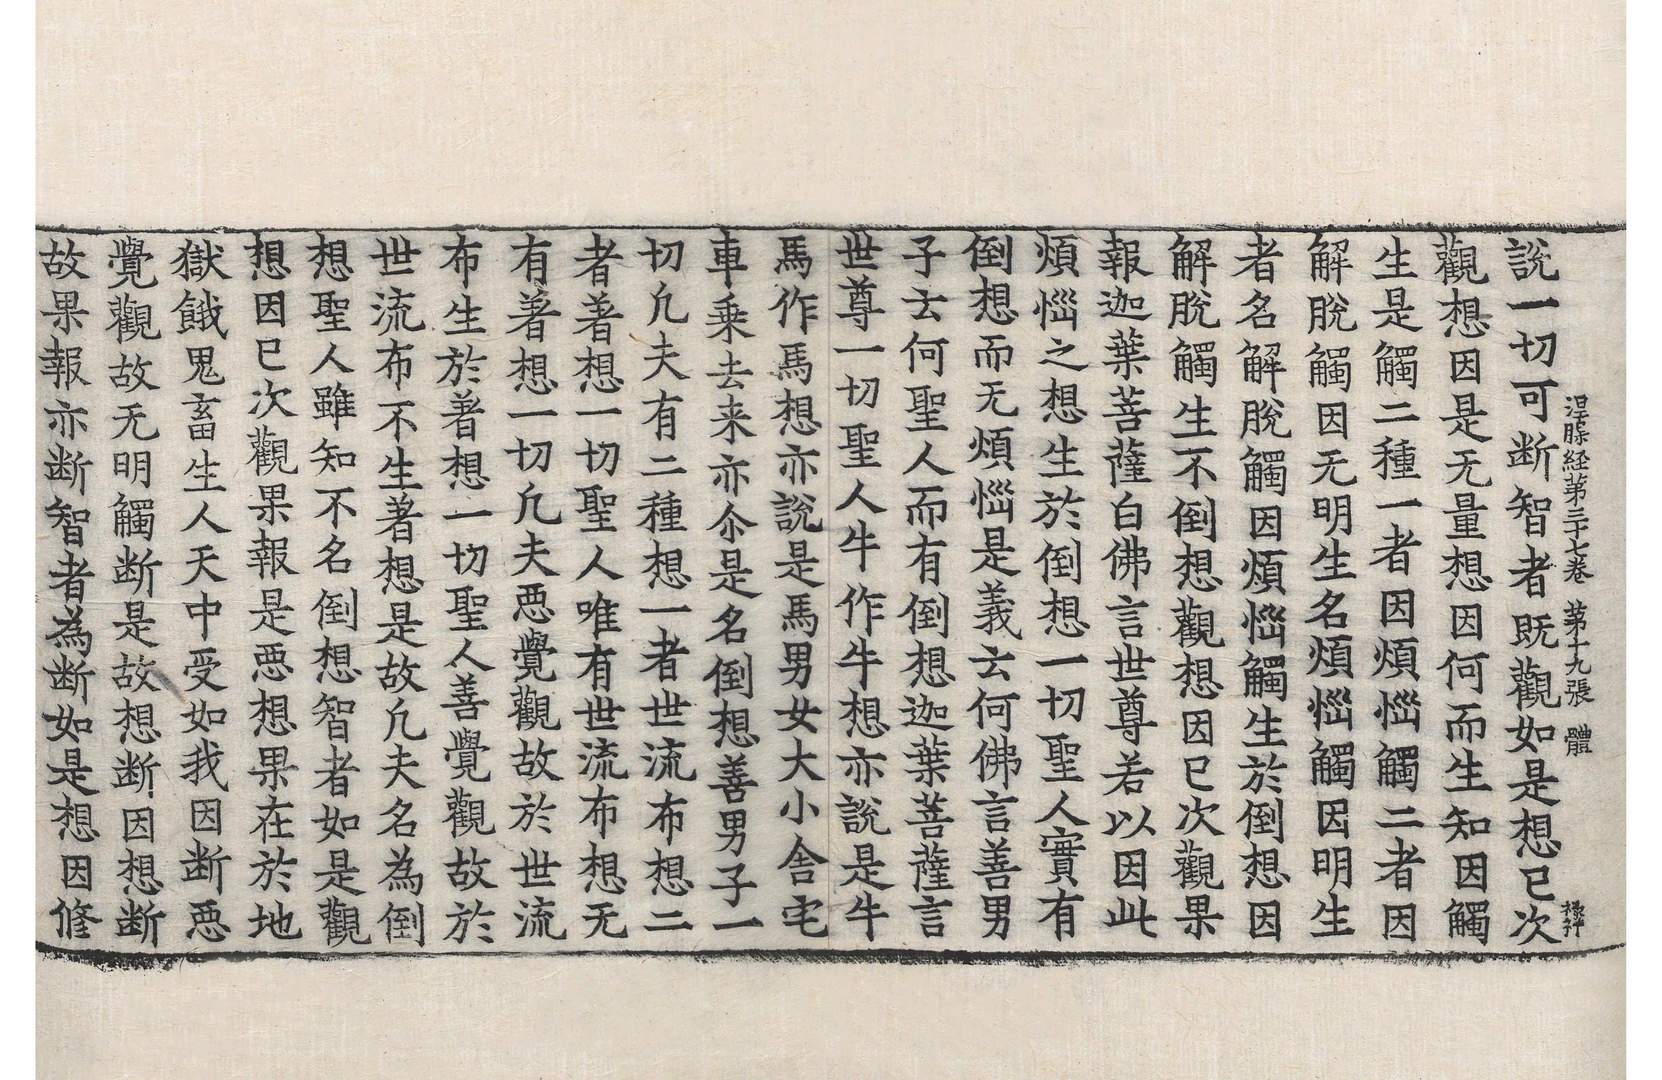 涅槃経第三十七巻 第十九張 體
說一切可断智者既觀如是想已次
觀想因是无量想因何而生知因觸
生是觸二種一者因煩惱觸二者因
解脫觸因无明生名煩惱觸因明生
者名解脫觸因煩惱觸生於倒想因
解脫觸生不倒想觀想因已次觀果
報迦葉菩薩白佛言世尊若以因此
煩惱之想生於倒想一切聖人實有
倒想而无煩惱是義云何佛言善男
子云何聖人而有倒想迦葉菩薩言
世尊一切聖人牛作牛想亦說是牛
馬作馬想亦說是馬男女大小舎宅
車乗去来亦尒是名倒想善男子一
切凡夫有二種想一者世流布想二
者著想一切聖人唯有世流布想无
有著想一切凡夫惡覺觀故於世流
布生於著想一切聖人善覺觀故於
世流布不生著想是故凡夫名為倒
想聖人雖知不名倒想智者如是觀
想因已次觀果報是惡想果在於地
獄餓鬼畜生人天中受如我因断惡
覺觀故无明觸断是故想断因想断
故果報亦断智者為断如是想因修